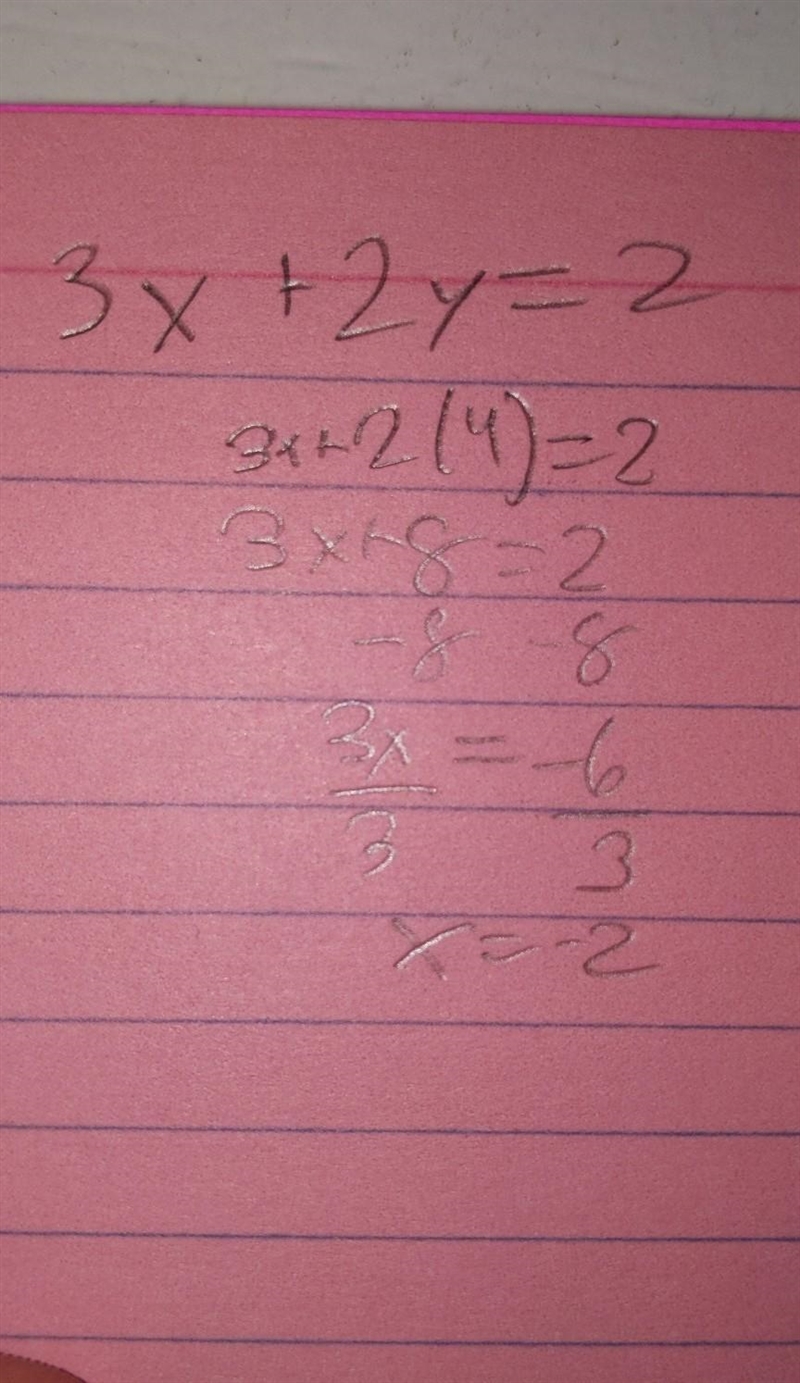 3x + 2y = 2
3x + 2(4) = 2
3x + 8 = 2
-8 -8
3x = -6
3 3
x = -2